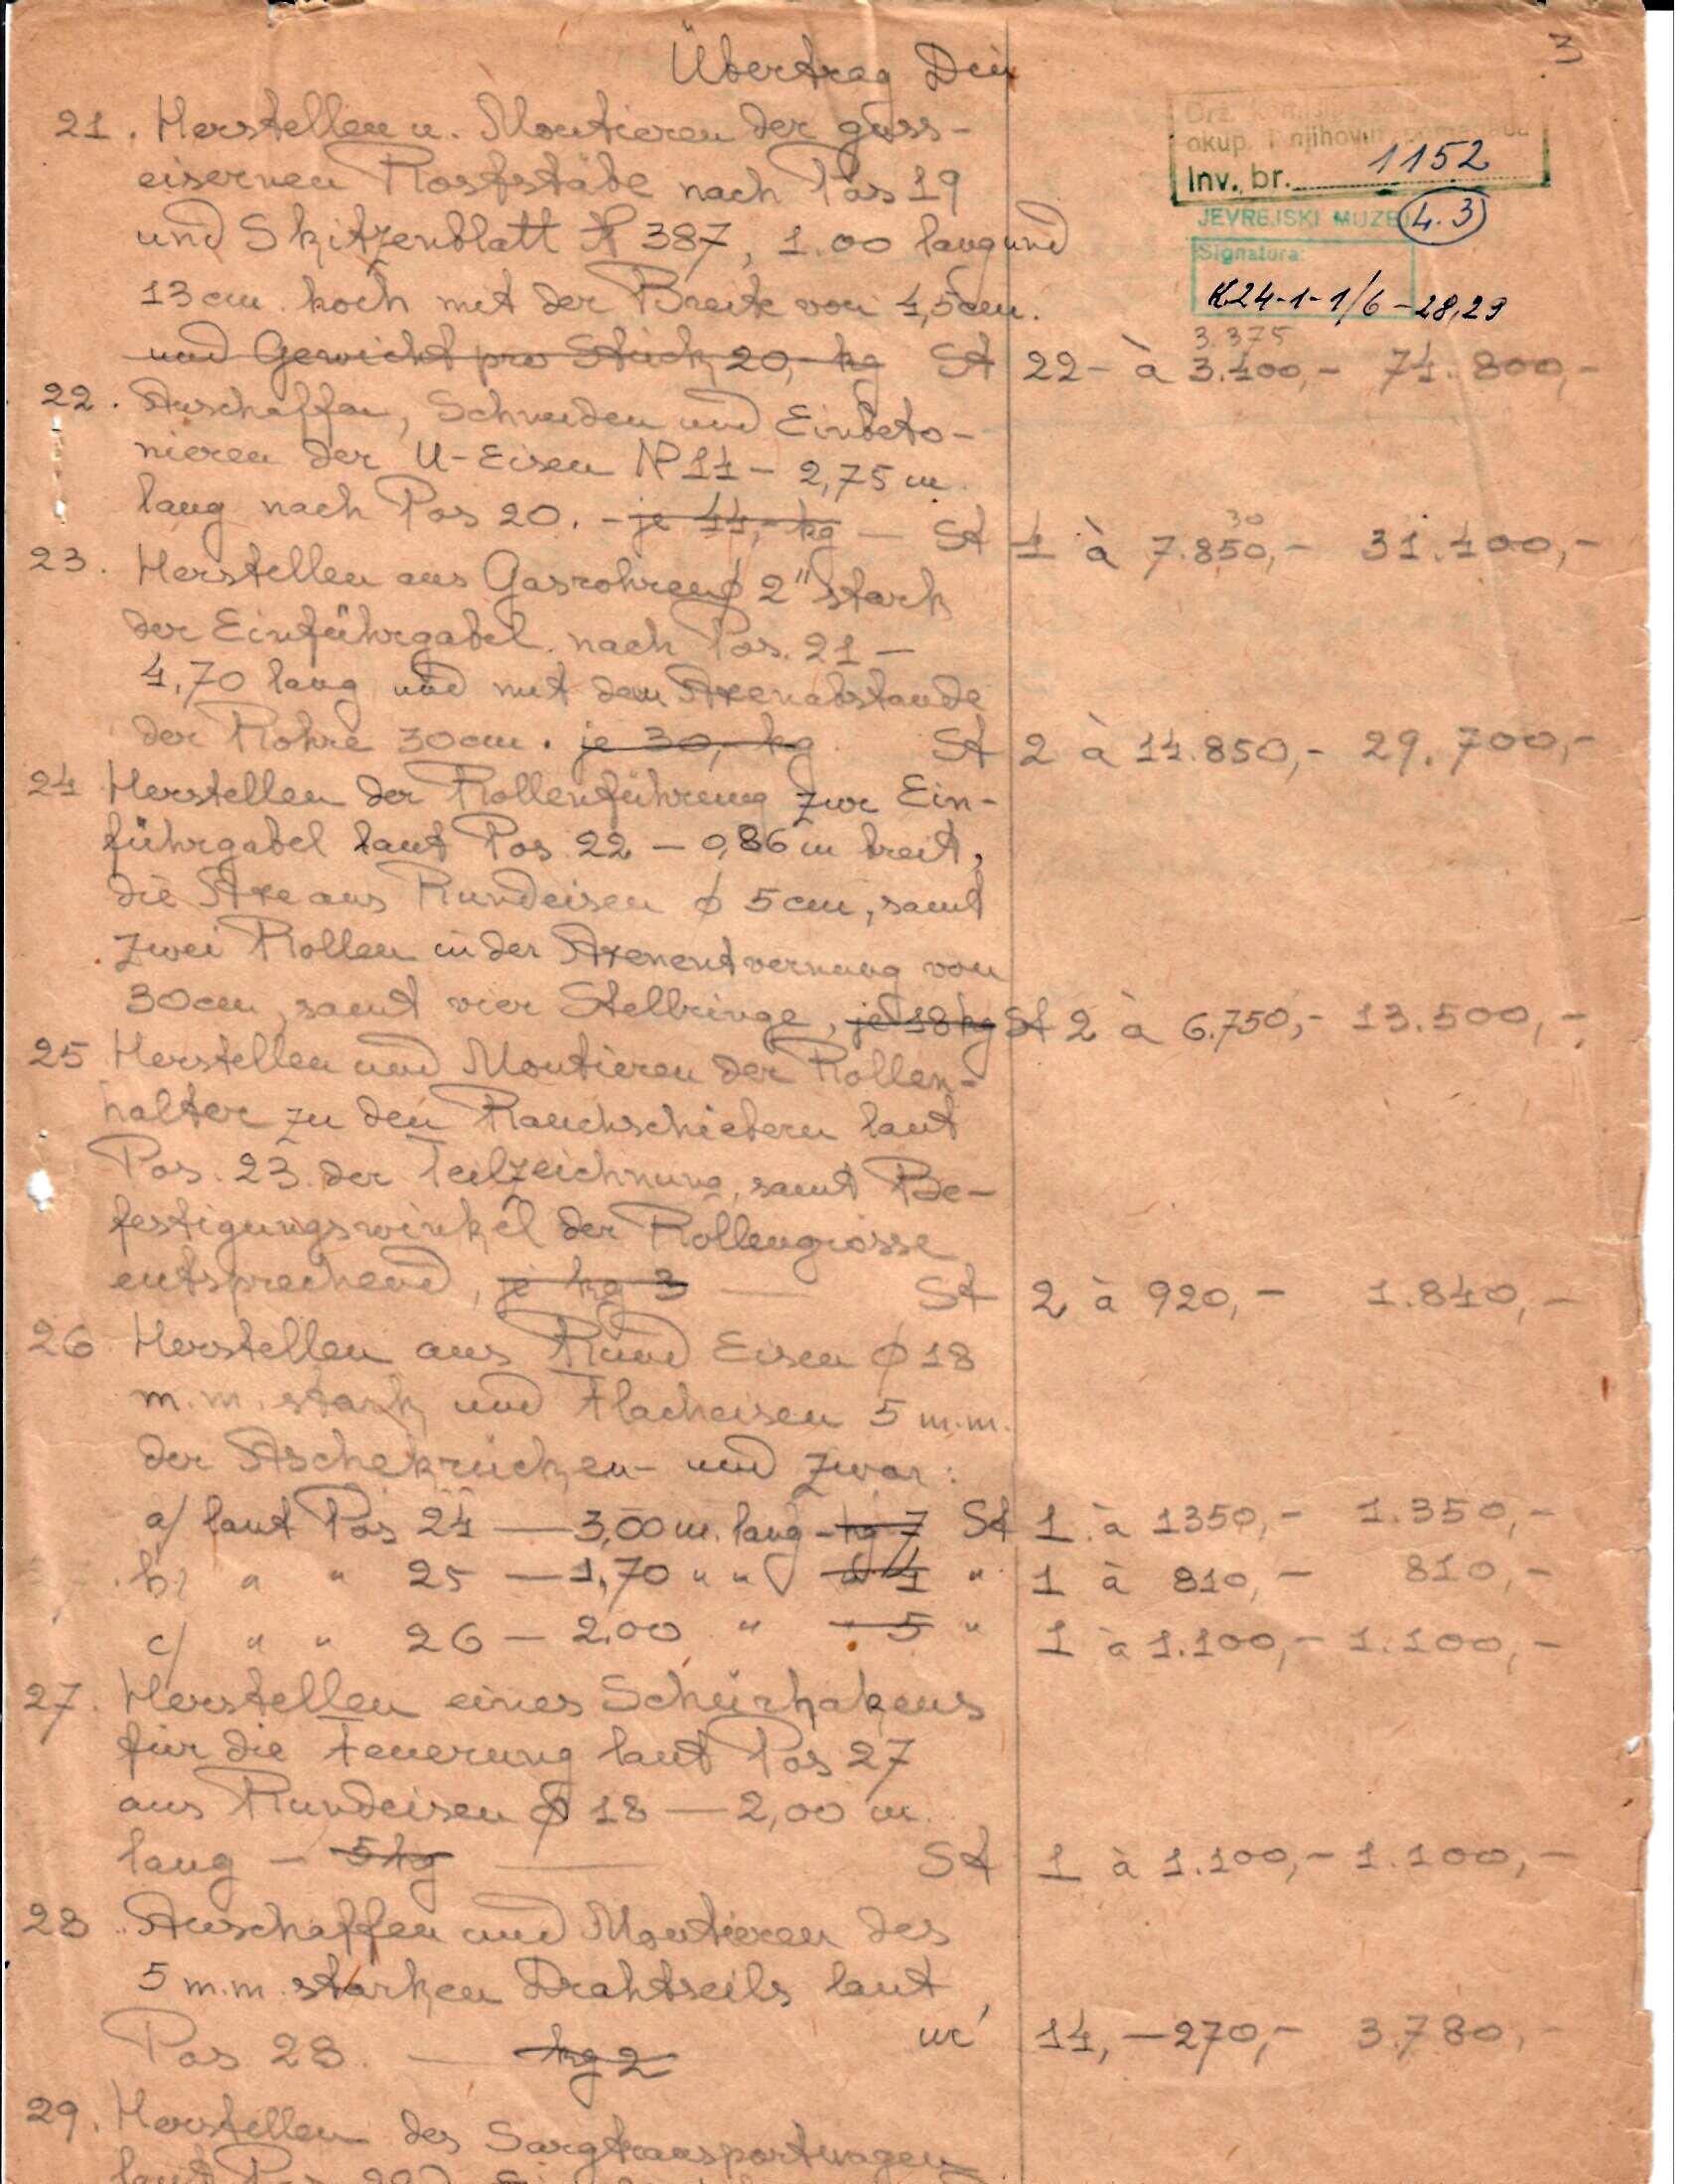 3
Übertrag Din
Inv. br. 1152
okup. i njihovih pomagača
JEVREJSKI MUZEJ 4.3
Signatura:
K.24-1-1/6-28,29
21. Herstellen u. Montieren der guss-
eisernen Roststäbe nach Pos 19
und Skitzenblatt N 387, 1.00 lang und
13 cm hoch mit der Breite von 4,5 cm.
3.375
und Gewicht pro Stück 20,- kg St 22- à 3.400,- 74.800,-
22. Anschaffen, Schneiden und Einbeto-
nieren der U-Eisen NP 14 - 2,75 m
30
lang nach Pos 20. - je 44,- kg — St 4 à 7.850,- 31.400,-
23. Herstellen aus Gasrohren ϕ 2" stark
der Einführgabel nach Pos. 21 -
4,70 lang und mit dem Axenabstande
der Rohre 30 cm. je 30,- kg St 2 à 14.850,- 29.700,-
24 Herstellen der Rollenführung zur Ein-
führgabel laut Pos 22 - 0,86 m breit,
die Axe aus Rundeisen ϕ 5 cm, samt
zwei Rollen in der Axenentvernung von
30 cm, samt vier Stellringe, je 18 kg St 2 à 6.750,- 13.500,-
25 Herstellen und Montieren der Rollen-
halter zu den Rauchschiebern laut
Pos. 23 der Teilzeichnung, samt Be-
festigungswinkel der Rollengrösse
entsprechend, je kg 3 — St 2 à 920,- 1.840,-
26 Herstellen aus Rund Eisen ϕ 18
m.m. stark und Flacheisen 5 m.m.
der Aschekrücken- und zwar:
a/ laut Pos 24 — 3,00 m. lang - kg 7 St 1 à 1350,- 1.350,-
b/ " " 25 — 1,70 " " " 4 " 1 à 810,- 810,-
c/ " " 26 - 2.00 " " 5 " 1 à 1.100,- 1.100,-
27. Herstellen eines Schürhakens
für die Feuerung laut Pos 27
aus Rundeisen ϕ 18 — 2,00 m.
lang - 5 kg — St 1 à 1.100,- 1.100,-
28 Anschaffen und Montieren des
5 m.m. starken Drahtseils laut
Pos 28. — kg 2 m' 14,- 270,- 3.780,-
29. Herstellen des Sargtransportwagen